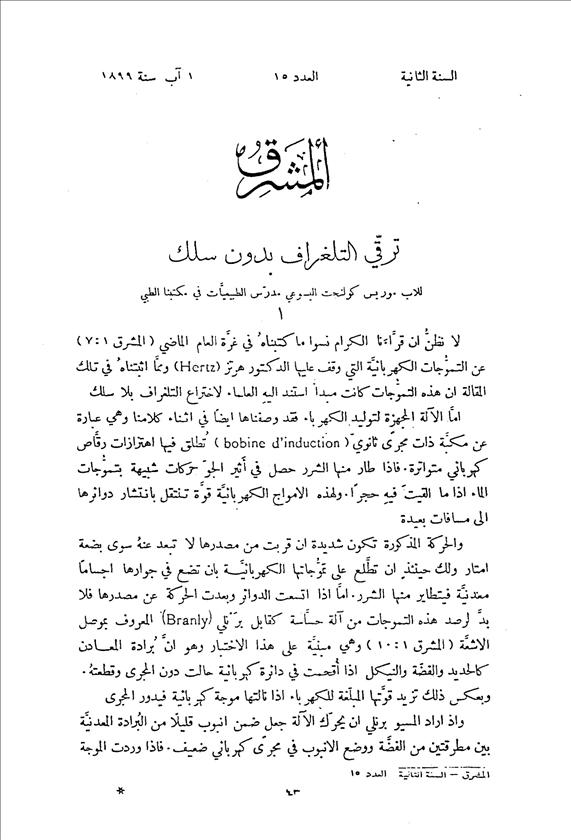 السنة الثانية العدد ١٥ ١ آب سنة ١٨٩٩
المشرق
ترقّي التلغراف بدون سلك
للاب موريس كولنجت اليسوعي مدرّس الطبيعيَّات في مكتبنا الطبي
١
لا نظنُّ ان قرَّاءنا الكرام نسوا ما كتبناهُ في غرَّة العام الماضي (المشرق ١:٧)
عن التموُّجات الكهربائيَّة التي وقف عليها الدكتور هرتز (Hertz) وممَّا اثبتناهُ في تلك
المقالة ان هذه التموُّجات كانت مبدأ استند اليهِ العلماء لاختراع التلغراف بلا سلك
امَّا الآلة المجهزة لتوليد الكهرباء فقد وصفناها ايضًا في اثناء كلامنا وهي عبارة
عن مكبَّة ذات مجرًى ثانويّ (bobine d'induction) تُطلق فيها اهتزازات رقَّاص
كهربائي متواترة. فاذا طار منها الشرر حصل في أثير الجوّ حركات شبيهة بتموُّجات
الماء اذا ما القيتَ فيهِ حجرًا. ولهذه الامواج الكهربائيَّة قوَّة تنتقل بانتشار دوائرها
الى مسافات بعيدة
والحركة المذكورة تكون شديدة ان قربت من مصدرها لا تبعد عنهُ سوى بضعة
امتار ولك حينئذٍ ان تطَّلع على تموُّجاتها الكهربائيَّة بان تضع في جوارها اجسامًا
معدنيَّة فيتطاير منها الشرر. امَّا اذا اتسعت الدوائر وبعدت الحركة عن مصدرها فلا
بدَّ لرصد هذه التموجات من آلة حسَّاسة كقابل برَنلي (Branly) المعروف بموصل
الاشعَّة (المشرق ١:١٠) وهي مبنيَّة على هذا الاختبار وهو انَّ بُرادة المعادن
كالحديد والفضَّة والنيكل اذا أُقحمت في دائرة كهربائية حالت دون المجرى وقطعتهُ.
وبعكس ذلك تزيد قوَّتها المبلّغة للكهرباء اذا نالتها موجة كهربائية فيدور المجرى
واذ اراد المسيو برنلي ان يحرّك الآلة جعل ضمن انبوب قليلًا من البُرادة المعدنيَّة
بين مطرقتين من الفضَّة ووضع الانبوب في مجرًى كهربائي ضعيف. فاذا وردت الموجة
المشرق – السنة الثانية العدد ١٥
٤٣ *